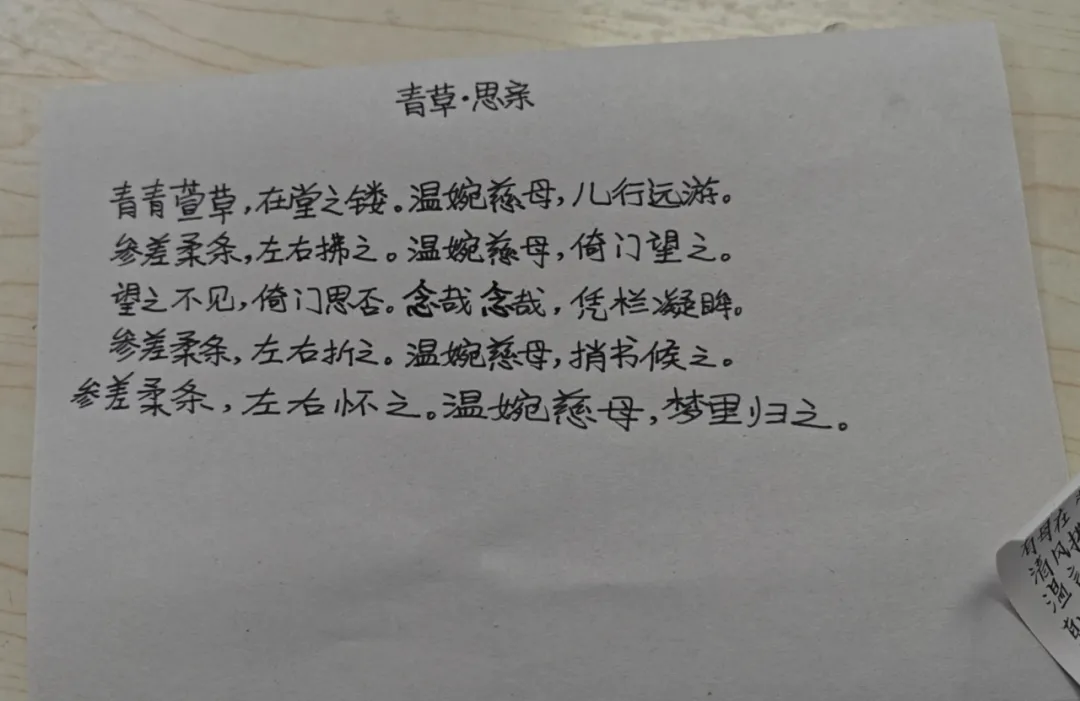 青草·思亲
青青萱草，在堂之镂。温婉慈母，儿行远游。
参差柔条，左右拂之。温婉慈母，倚门望之。
望之不见，倚门思否。念哉念哉，凭栏凝眸。
参差柔条，左右折之。温婉慈母，捎书候之。
参差柔条，左右怀之。温婉慈母，梦里归之。
有母在
清风
温